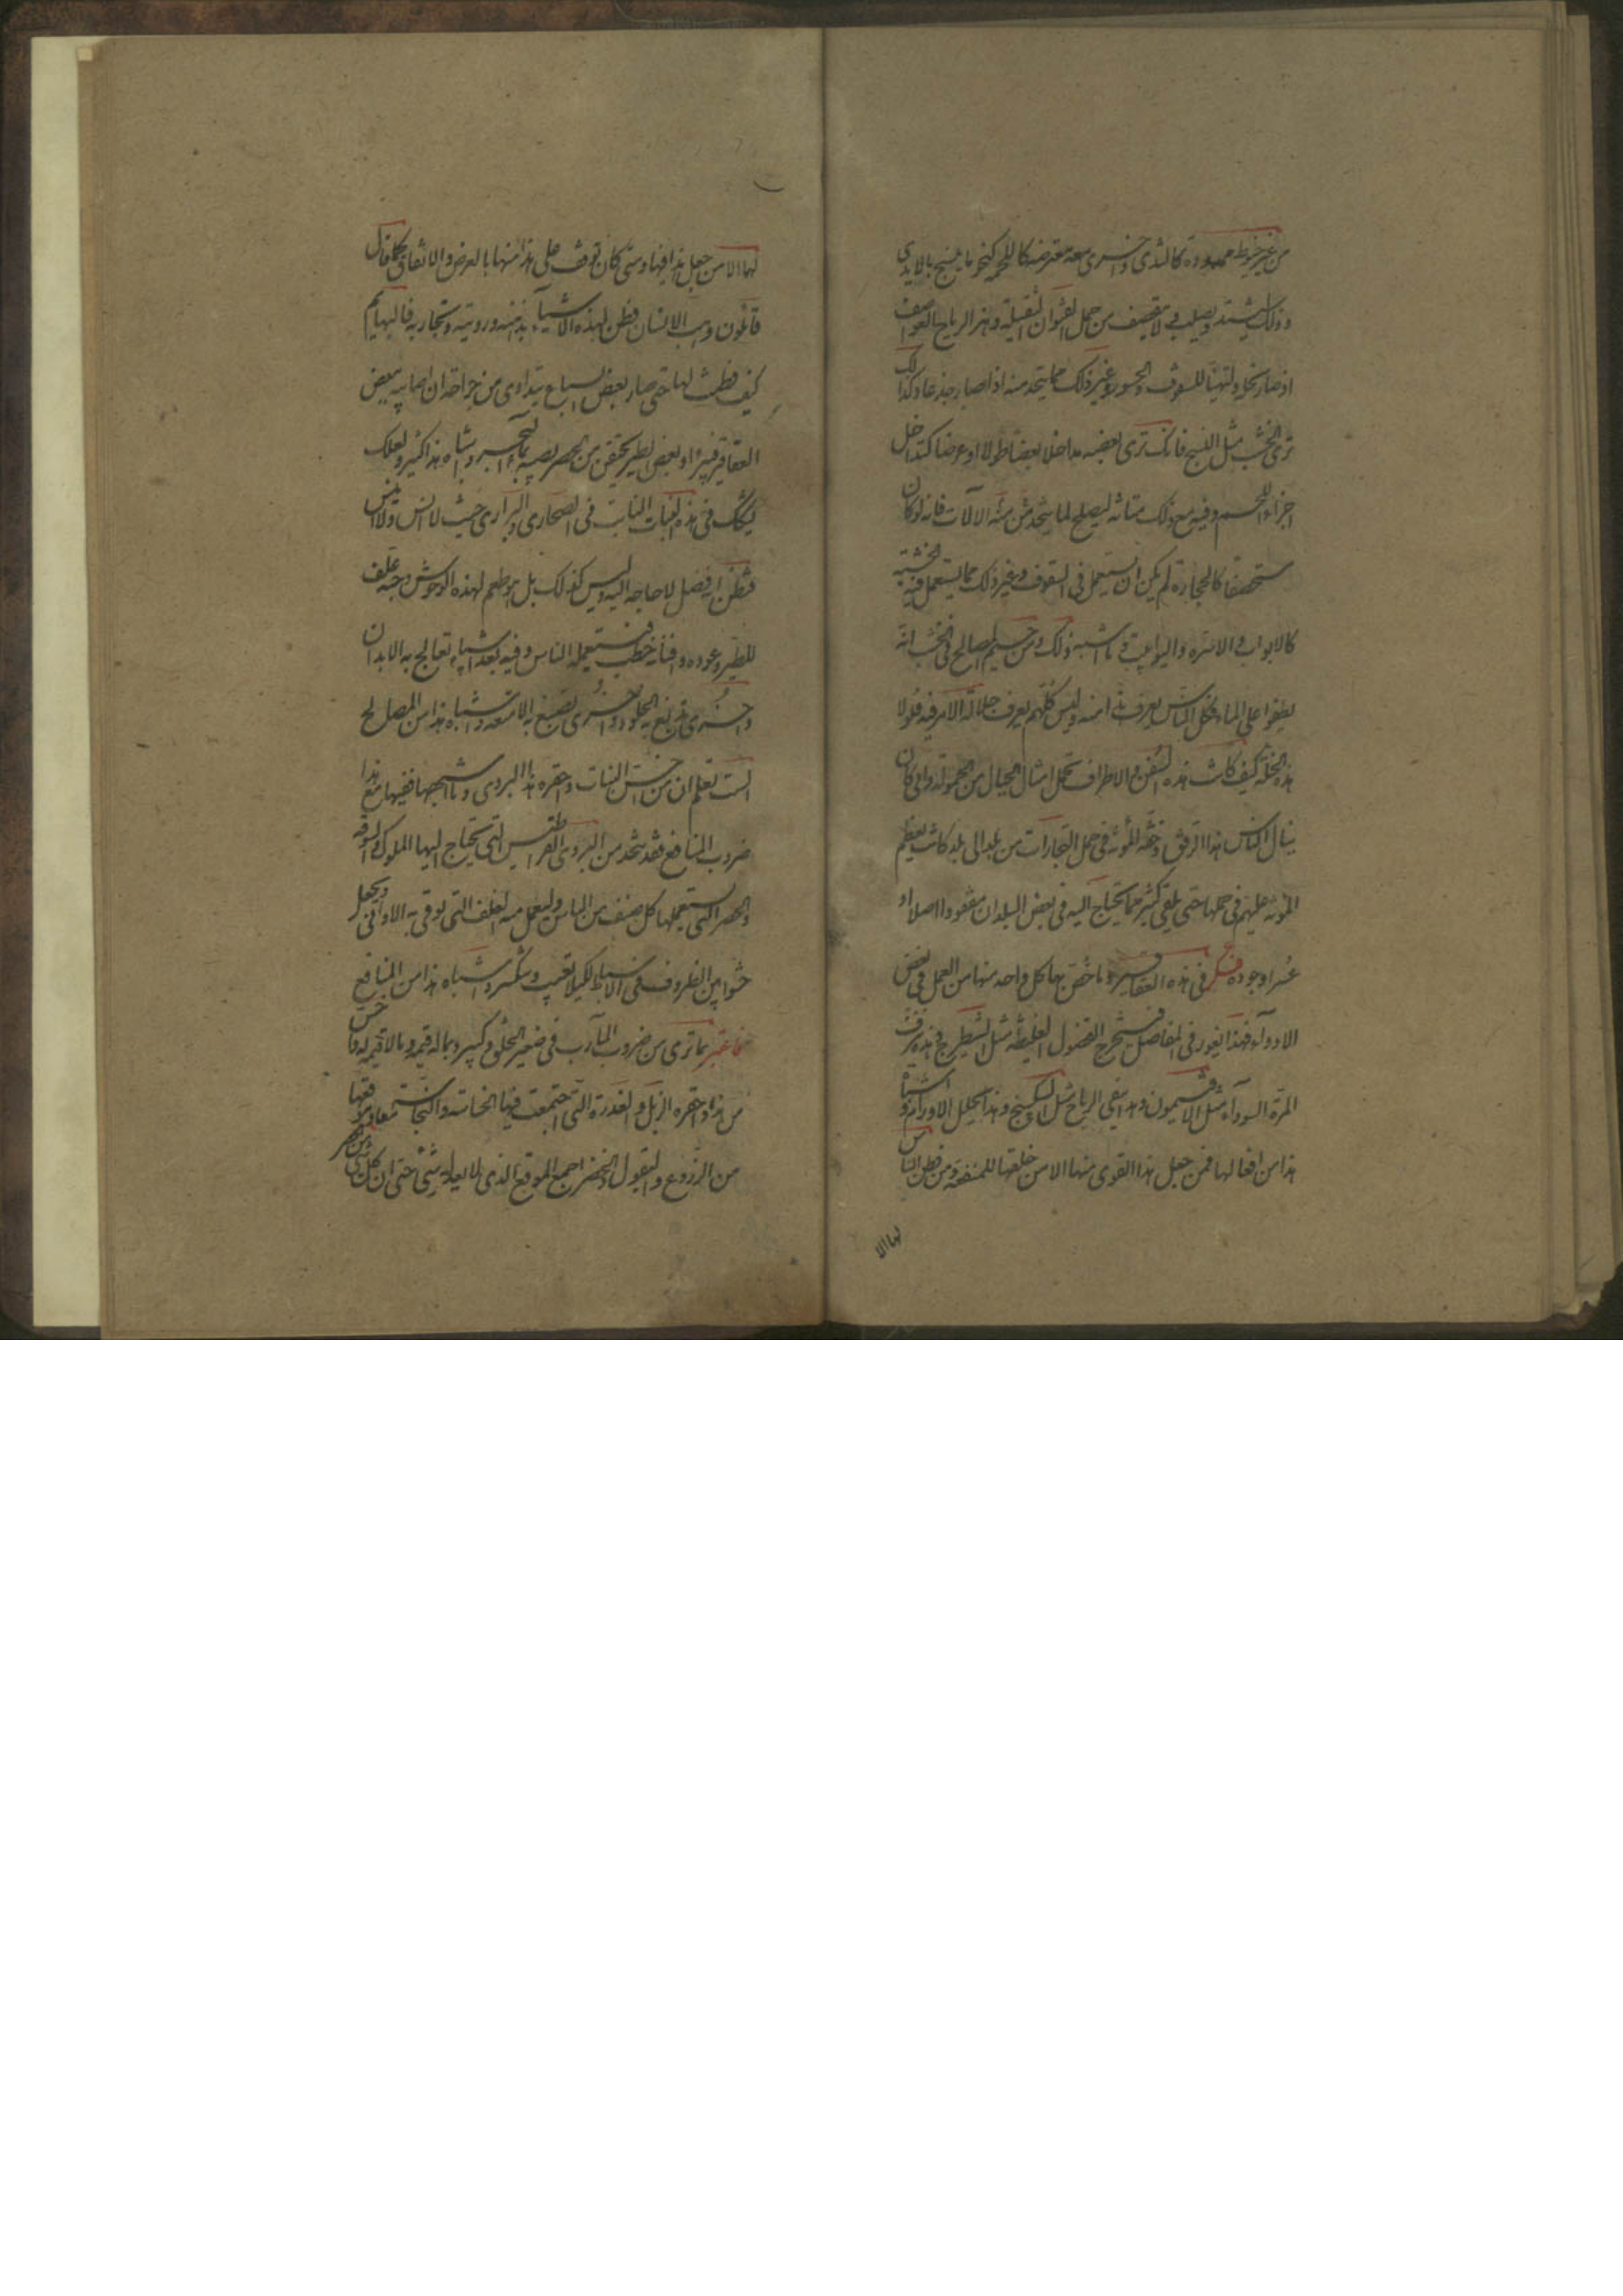 من غير خيوط ممدودة كالسدى واخرى معه معترضة كاللحمة كنحو ما ينسج بالايدي
وذلك ليشتد ويصلب ولا تنقصف من حمل القنوان الثقيلة وهز الرياح العواصف
اذ صار نخلا وليتهيا للسقوف والجسور وغير ذلك مما يتخذ منه اذا صار جذعا وكذلك
ترى الخشب مثل النسج فانك ترى بعضه مداخلا بعضا طولا او عرضا كتداخل
اجزاء اللحم وفيه مع ذلك متانة ليصلح لما يتخذ منه الالات فانه لو كان
مستحصفا كالحجارة لم يكن ان يستعمل في السقوف وغير ذلك مما يستعمل فيه الخشبة
كالابواب والاسرة والتوابيت وما اشبه ذلك ومن جسيم المصالح في الخشب انه
يطفوا على الماء فكل الناس يعرف هذا منه وليس كلهم يعرف جلالة الامر فيه فلولا
هذه الخلة كيف كانت هذه السفن والاظراف تحمل امثال الجبال من الحمولة وانى كان
ينال الناس هذا الرفق وخفة المؤنة في حمل التجارات من بلد الى بلد كانت تعظم
المؤنة عليهم في حملها حتى يلقى كثير مما يحتاج اليه في بعض البلدان مفقودا اصلا او
عسر اوجوده فكر في هذه العقاقير وما خص بها كل واحد منها من العمل في بعض
الادواء فهذا يغور في المفاصل فيستخرج الفضول الغليظة مثل الشيطرج وهذا ينزف
المرة السوداء مثل الافتيمون وهذا ينفي الرياح مثل السكبينج وهذا يحلل الاورام واشباه
هذا من افعالها فمن جعل هذا القوى منها الا من خلقها للمنفعة ومن فطن الناس
لها الا
لها الا من جعل هذا فيها ومتى كان توقف على هذا منها بالعرض والاتفاق كما قال
قائلون وهب الانسان فطن لهذه الاشياء بذهنه ورويته وتجاربه فالبهايم
كيف فطنت لها حتى صار بعض السباع يتداوى من جراحة ان اصابته ببعض
العقاقير فيبرء وبعض الطير يحتقن من الحصر يصيبه بماء البحر واشباه هذا كثير ولعلك
تشكك في هذه النبات النابت في الصحارى والبرارى حيث لا انس ولا انيس
فتظن انه فضل لا حاجة اليه وليس كذلك بل هو طعم لهذه الوحوش وحبه علف
للطير وعوده وافنانه حطب فيستعمله الناس وفيه بعد اشياء تعالج به الابدان
واخرى تدبغ به الجلود واخرى تصبغ به الامتعة واشباه هذا من المصالح
الست تعلم ان من اخس النبات واحقره هذا البردى وما اشبهها ففيها مع هذا
ضروب المنافع فقد يتخذ من البردى القراطيس التي يحتاج اليها الملوك والسوقة
والحصر التي يستعملها كل صنف من الناس وليعمل منه الغلف التي يوقى به الاوانى ويجعل
حشوا بين الظروف في الاسفاط لكيلا تعيب وتنكسر واشباه هذا من المنافع
فاعتبر بما ترى من ضروب المآرب في صغير الخلق وكبيره وبما له قيمة وما لا قيمة له واخس
من هذا واحقره الزبل والعذرة التي اجتمعت فيها الخساسة والنجاسة معا وموقعها
من الزروع والبقول والخضر اجمع الموقع الذي لا يعدله شئ حتى ان كل شئ من الخضر